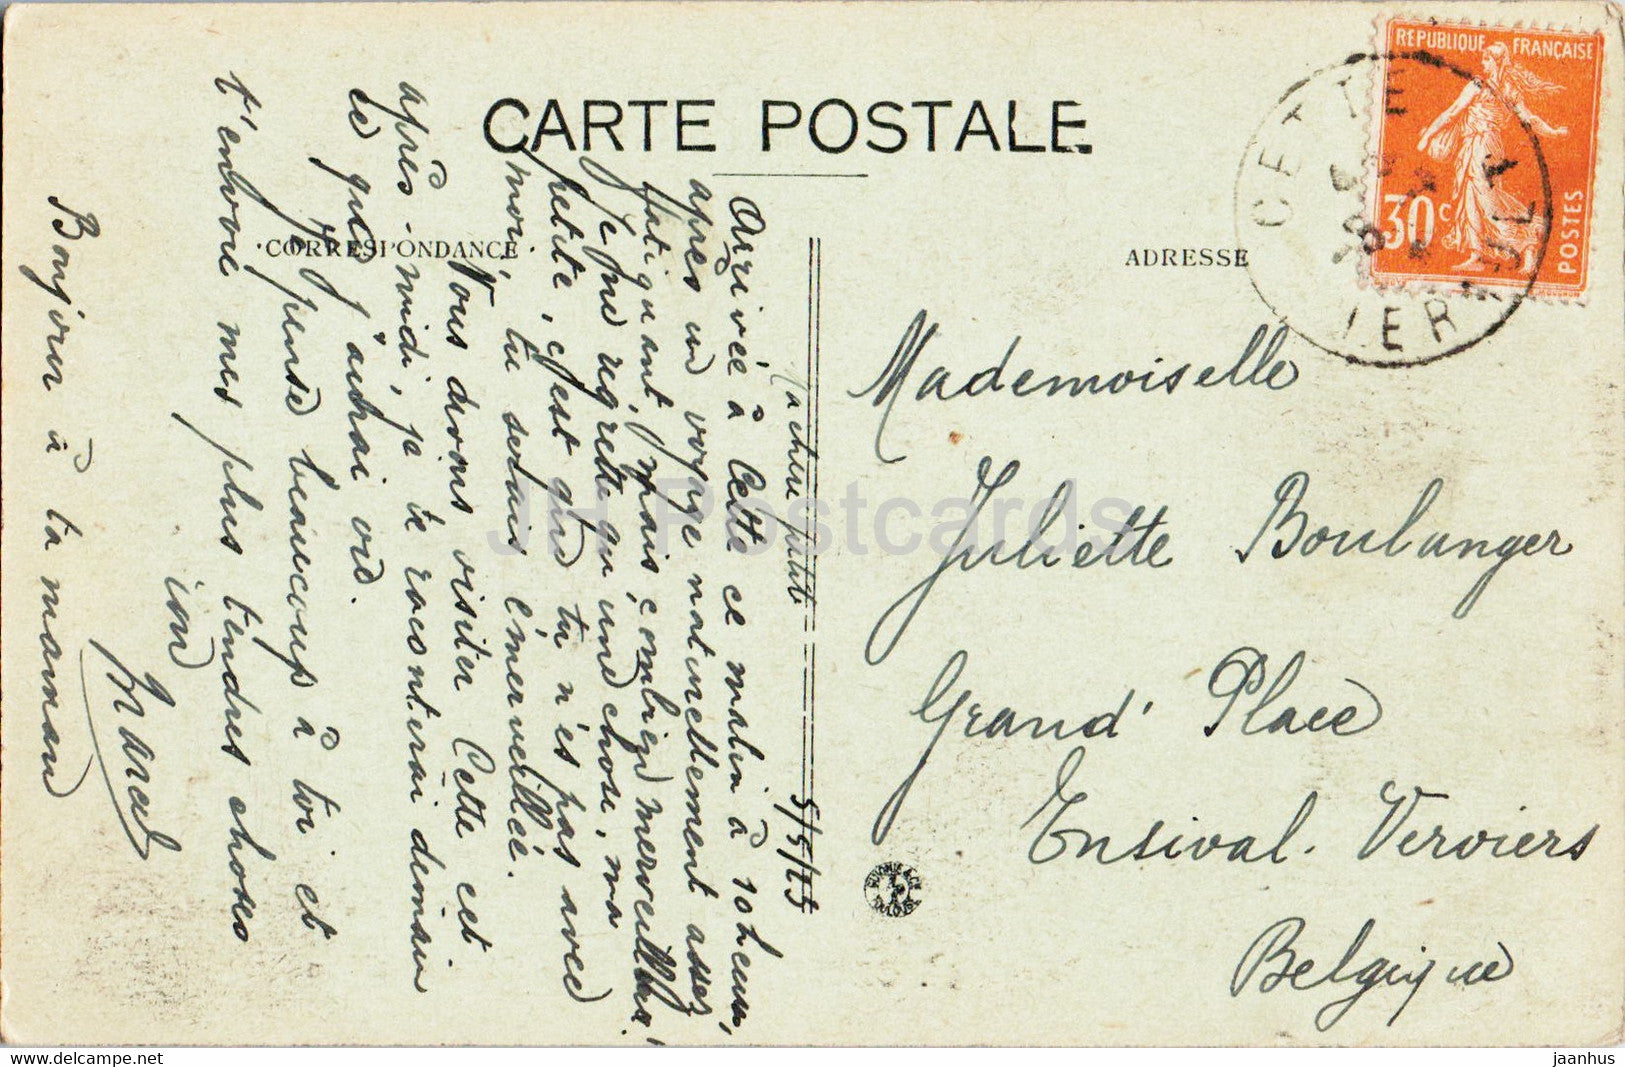 CARTE POSTALE
CORRESPONDANCE
ADRESSE
REPUBLIQUE FRANÇAISE
30c
POSTES
CETTE
5/5/25
Ma chère petite
Arrivée à Cette ce matin à 10 heures,
après un voyage naturellement assez
fatiguant, mais, combien merveilleux.
Je ne regrette qu'une chose, ma
petite, c'est que tu n'es pas avec
moi, tu serais émerveillée.
Nous avons visiter Cette cet
après-midi, je te raconterai demain
ce que j'aurai vu.
Je pense beaucoup à toi et
t'envoie mes plus tendres choses
Marcel
Bonjour à ta maman
Mademoiselle
Juliette Boulanger
Grand' Place
Ensival. Verviers
Belgique
JH Postcards
jaanhus
www.delcampe.net